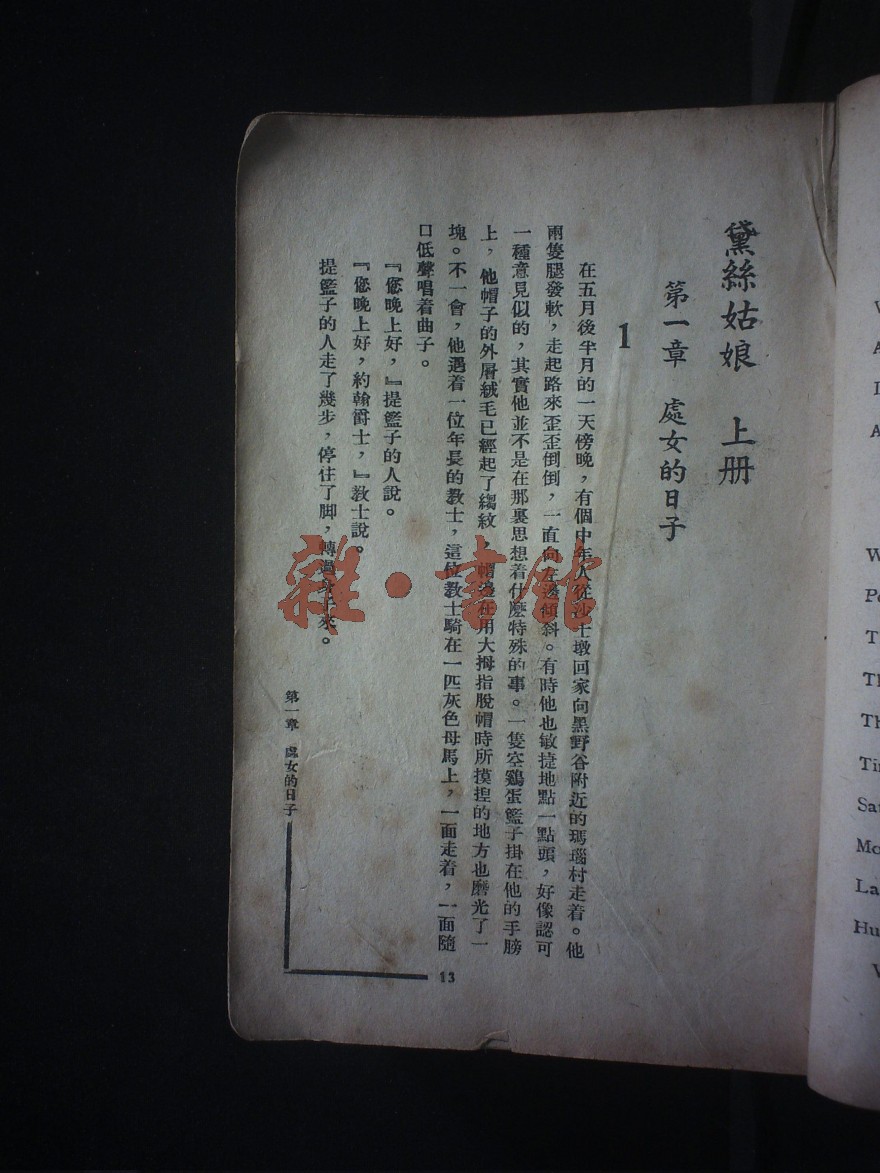 黛絲姑娘 上册
第一章 處女的日子
1
在五月後半月的一天傍晚，有個中年人從沙士墩回家向黑野谷附近的瑪瑙村走着。他
兩隻腿發軟，走起路來歪歪倒倒，一直向左邊傾斜。有時他也敏捷地點一點頭，好像認可
一種意見似的，其實他並不是在那裏思想着什麼特殊的事。一隻空鷄蛋籃子掛在他的手膀
上，他帽子的外層絨毛已經起了縐紋，帽邊在用大拇指脫帽時所摸捏的地方也磨光了一
塊。不一會，他遇着一位年長的教士，這位教士騎在一匹灰色母馬上，一面走着，一面隨
口低聲唱着曲子。
『您晚上好，』提籃子的人說。
『您晚上好，約翰爵士，』教士說。
提籃子的人走了幾步，停住了脚，轉過身子來。
第一章 處女的日子
13
雜·書館
Po
T
Th
Th
Tin
Sa
Mo
La
Hu